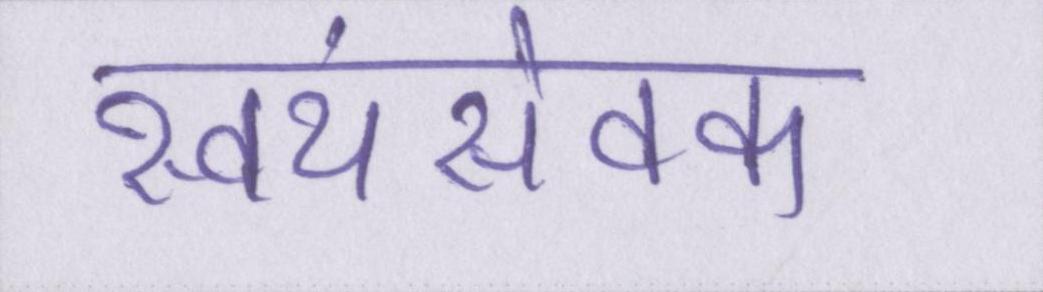 स्वयंसेवक